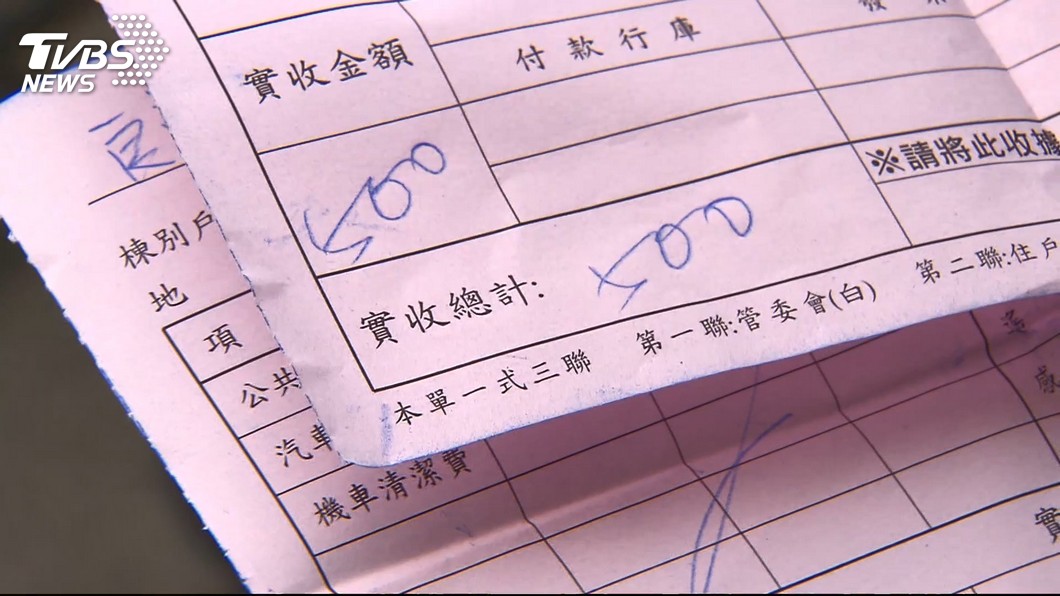 TVBS
NEWS
實收金額
付款行庫
500
※請將此收據
實收總計:
500
本單一式三聯 第一聯:管委會(白) 第二聯:住戶
棟別戶
地
項
公共
汽車
機車清潔費
實